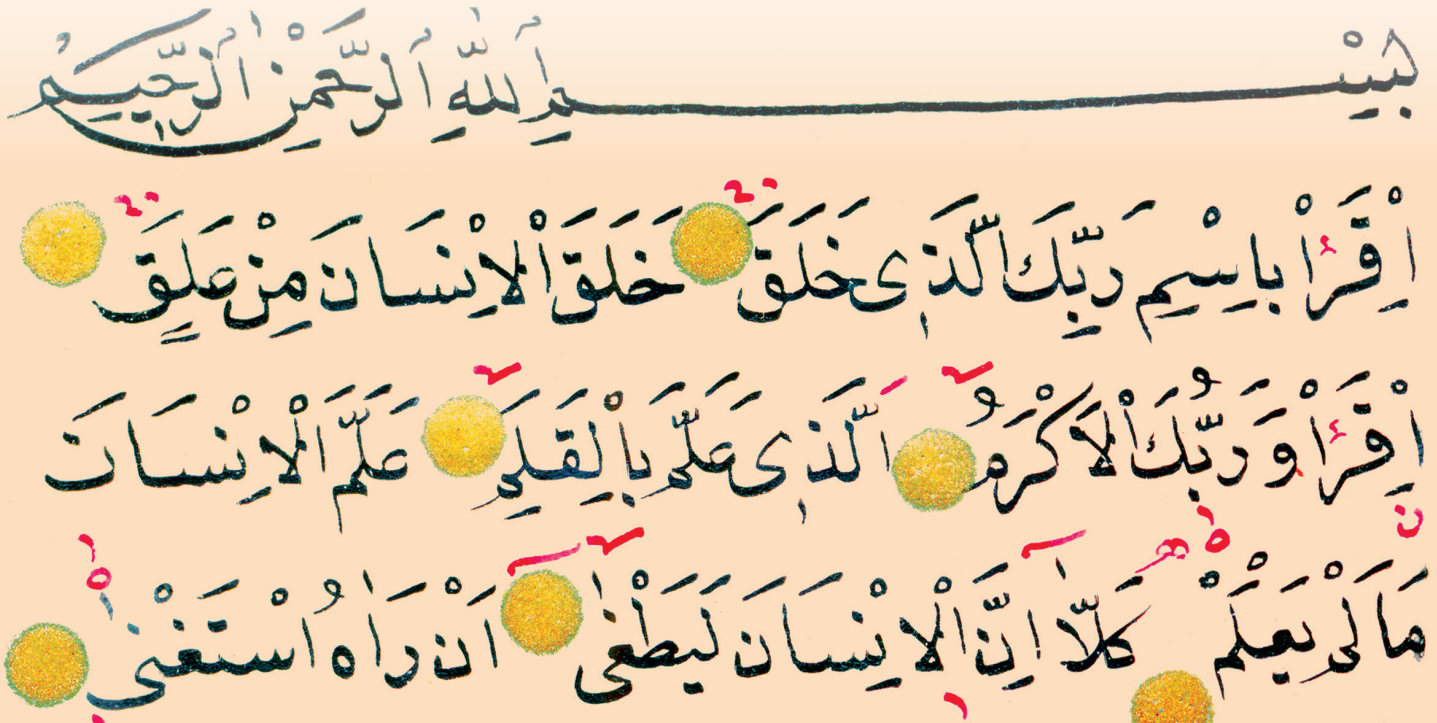 بِسْمِ اللّٰهِ الرَّحْمٰنِ الرَّحِيمِ
اِقْرَاْ بِاسْمِ رَبِّكَ الَّذٖى خَلَقَ خَلَقَ الْاِنْسَانَ مِنْ عَلَقٍ
اِقْرَاْ وَرَبُّكَ الْاَكْرَمُ اَلَّذٖى عَلَّمَ بِالْقَلَمِ عَلَّمَ الْاِنْسَانَ
مَا لَمْ يَعْلَمْ كَلَّا اِنَّ الْاِنْسَانَ لَيَطْغٰى اَنْ رَاٰهُ اسْتَغْنٰى